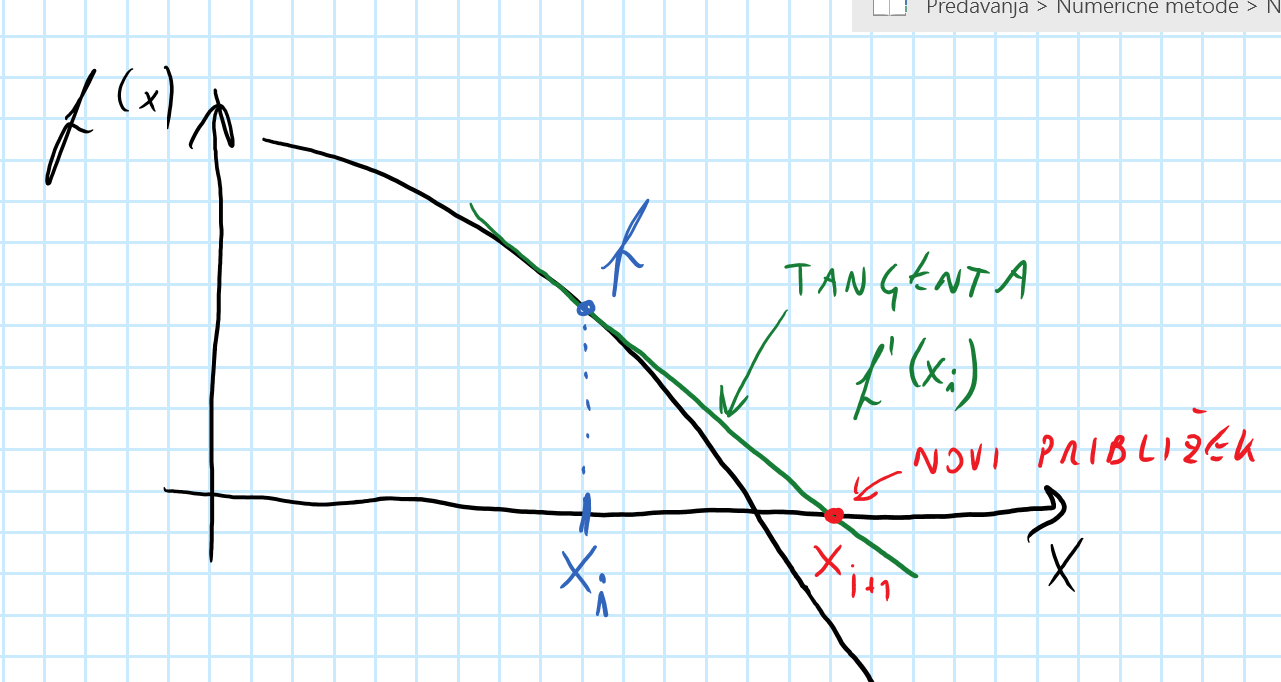 Predavanja > Numerične metode > N
f(x)
TANGENTA
f'(xi)
NOVI PRIBLIŽEK
xi
xi+1
x